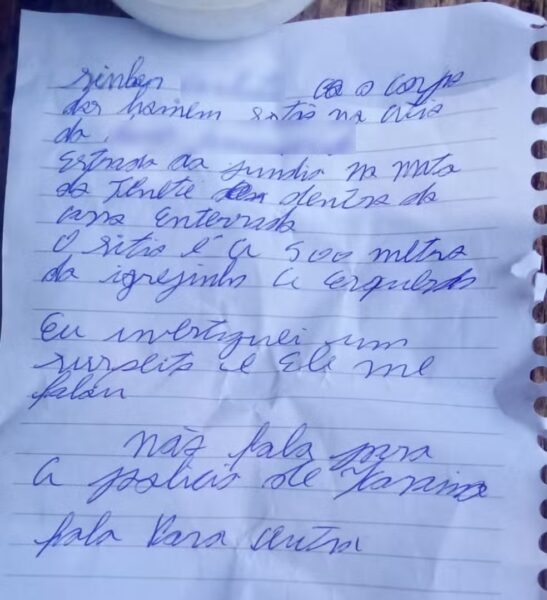 senhor ca o corpo
dos homem estão na área
da
Estrada da Jundia na mata
da Tenete dentro da
casa Enterrada
O sitio é a 500 metro
da igrejinha a esquerda
Eu investiguei um
suspeito e Ele me
falou
não fala para
a policia de
fala Para outra